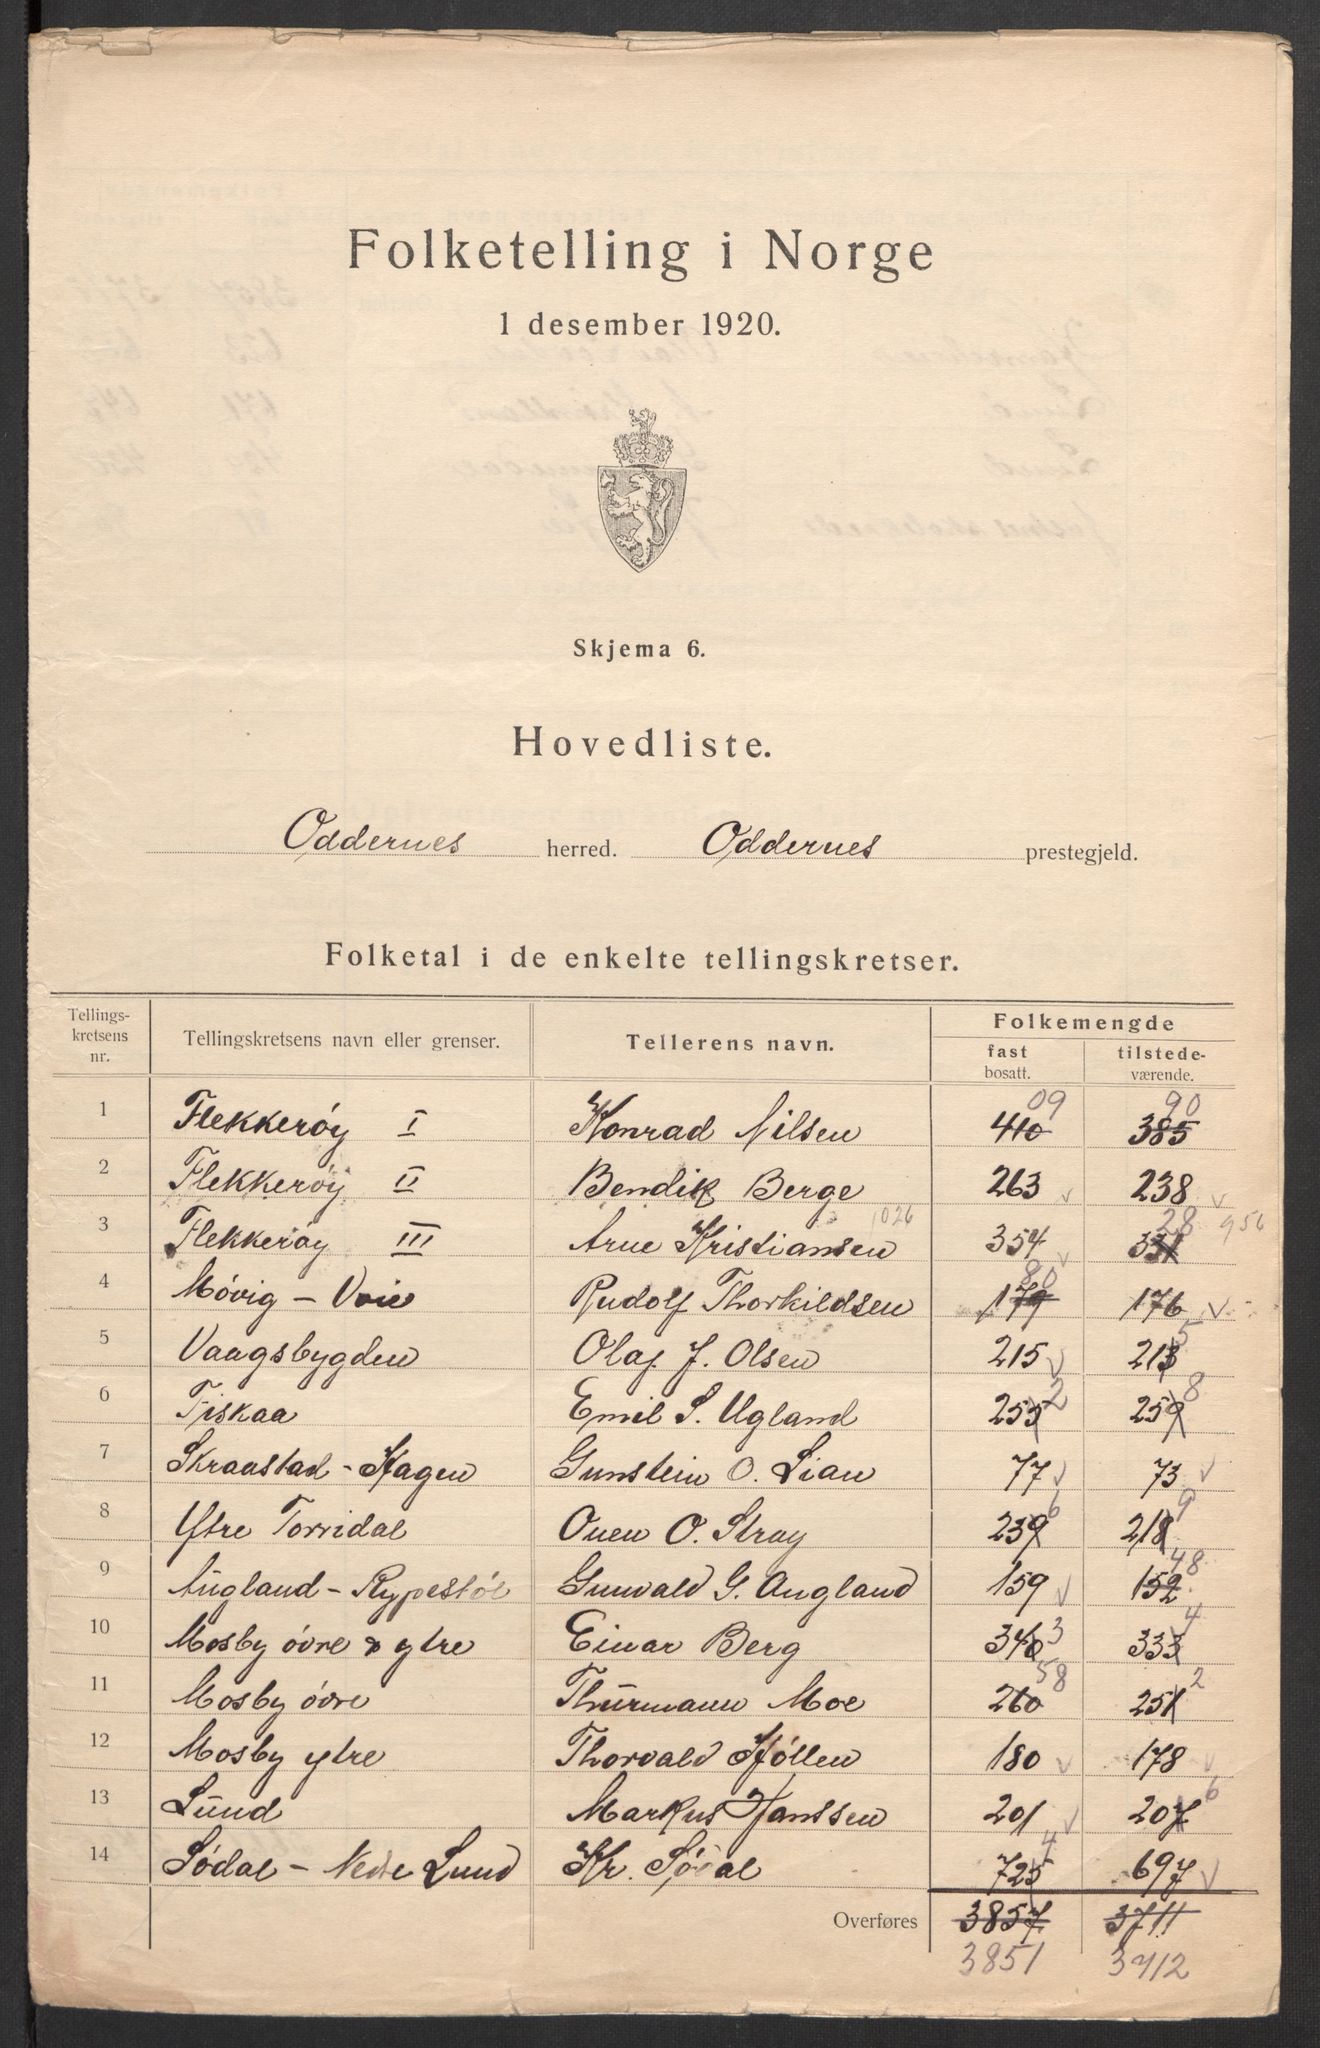 Folketelling i Norge
1 desember 1920.
Skjema 6.
Hovedliste.
Oddernes herred. Oddernes prestegjeld.
Folketal i de enkelte tellingskretser.
Tellings-kretsens nr. Tellingskretsens navn eller grenser. Tellerens navn. Folkemengde
fast bosatt. tilstede-værende.
09 90
1 Flekkerøy I Konrad Nilsen 410 385
2 Flekkerøy II Bendik Berge 263 238
1026 28 956
3 Flekkerøy III Arne Kristiansen 354 331
80
4 Møvig - Voie Rudolf Thorkildsen 179 176
5 Vaagsbygden Olaf J. Olsen 215 213 5
6 Fiskaa Emil S. Ugland 255 2 259 8
7 Skraastad - Hagen Gunstein O. Lian 77 73
8 Ytre Torridal Ouen O. Stray 239 6 218 9
9 Augland - Rypestøl Gunvald G. Augland 159 152 48
10 Mosby øvre & ytre Einar Berg 340 3 333 4
11 Mosby øvre Thurmann Moe 260 58 251 2
12 Mosby ytre Thorvald Høllen 180 178
13 Lund Markus Hanssen 201 207 6
14 Sødal - Nedre Lund Kr. Sødal 725 4 697
Overføres 3857 3711
3851 3712